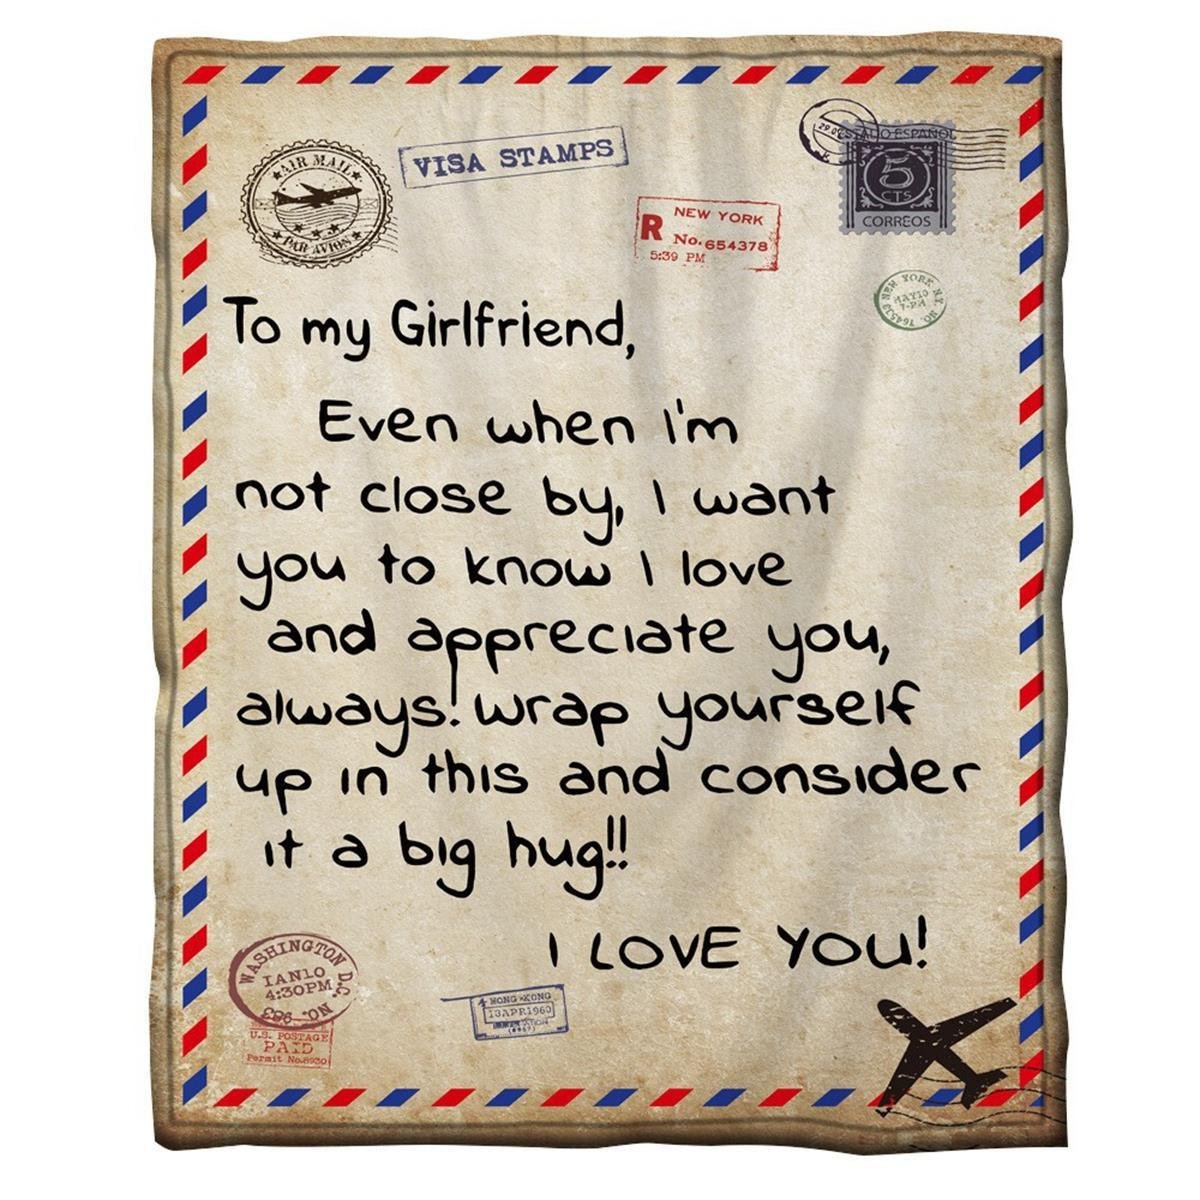 AIR MAIL
PAR AVION
VISA STAMPS
ESTADO ESPAÑOL
5
CTS
CORREOS
R NEW YORK
No. 654378
5:39 PM
NEW YORK N.Y.
MAY10
7-PM
NO. 764530
To my Girlfriend,
Even when I'm
not close by, I want
you to know I love
and appreciate you,
always! wrap yourself
up in this and consider
it a big hug!!
I LOVE YOU!
WASHINGTON D.C.
IAN10
4:30PM
NO. 983
U.S. POSTAGE
PAID
Permit No.8930
HONG KONG
13APR1960